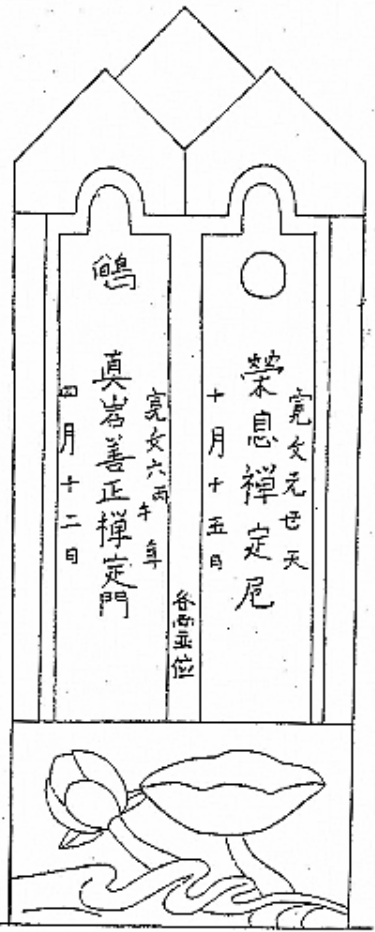 寛文元廿天
榮息禅定尼
十月十五日
寛文六丙午年
真岩善正禅定門
四月十二日